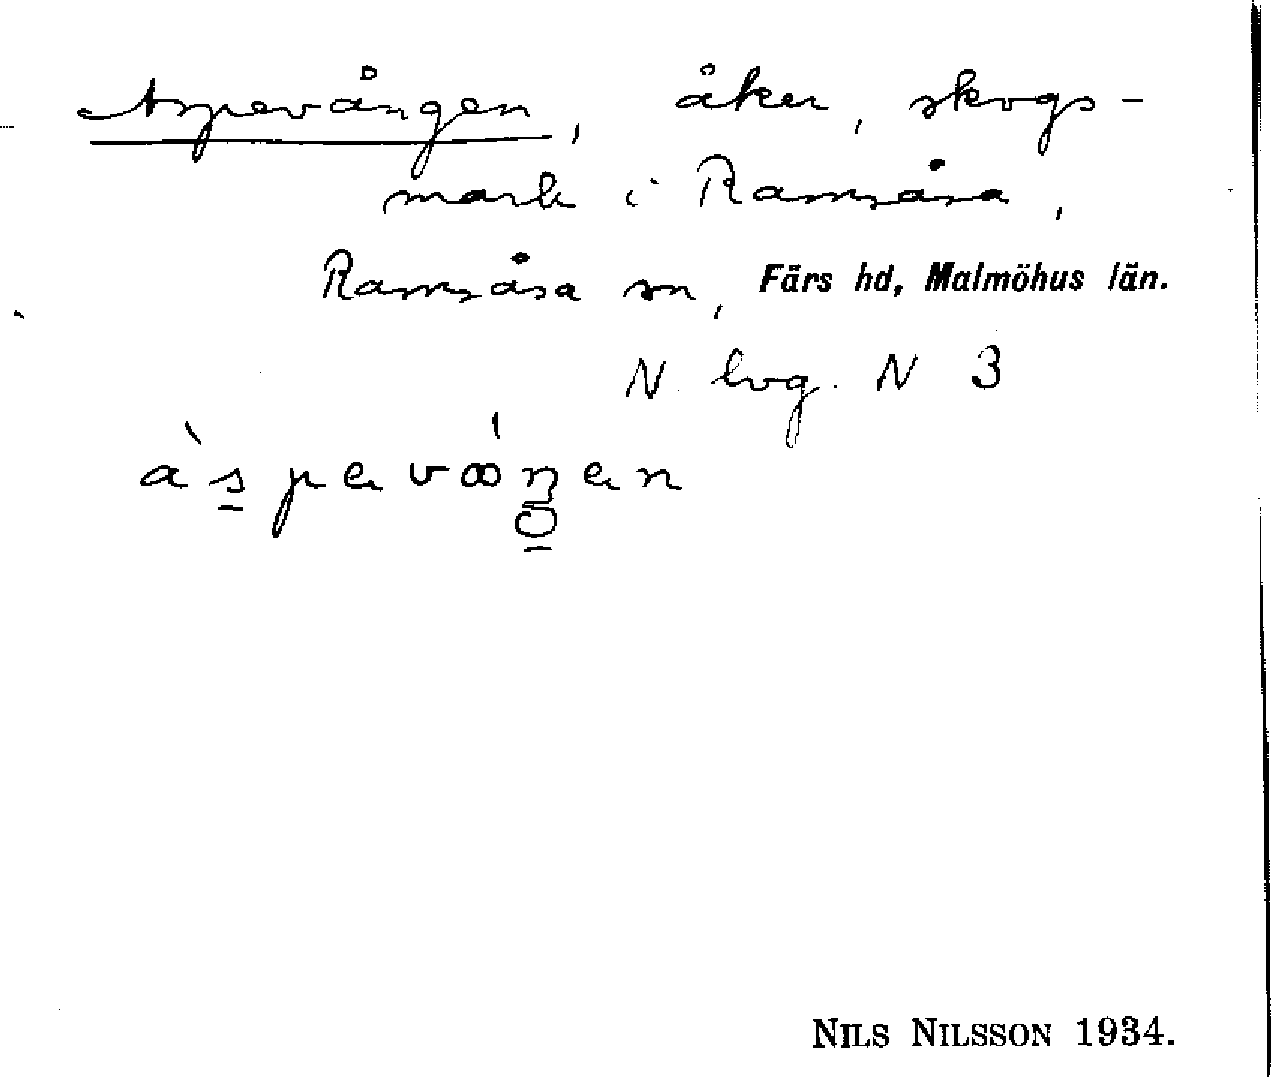 Aspevången, åker, skogs-
mark i Ramsåsa,
Ramsåsa sn, Färs hd, Malmöhus län.
N. hvg. N 3
NILS NILSSON 1934.